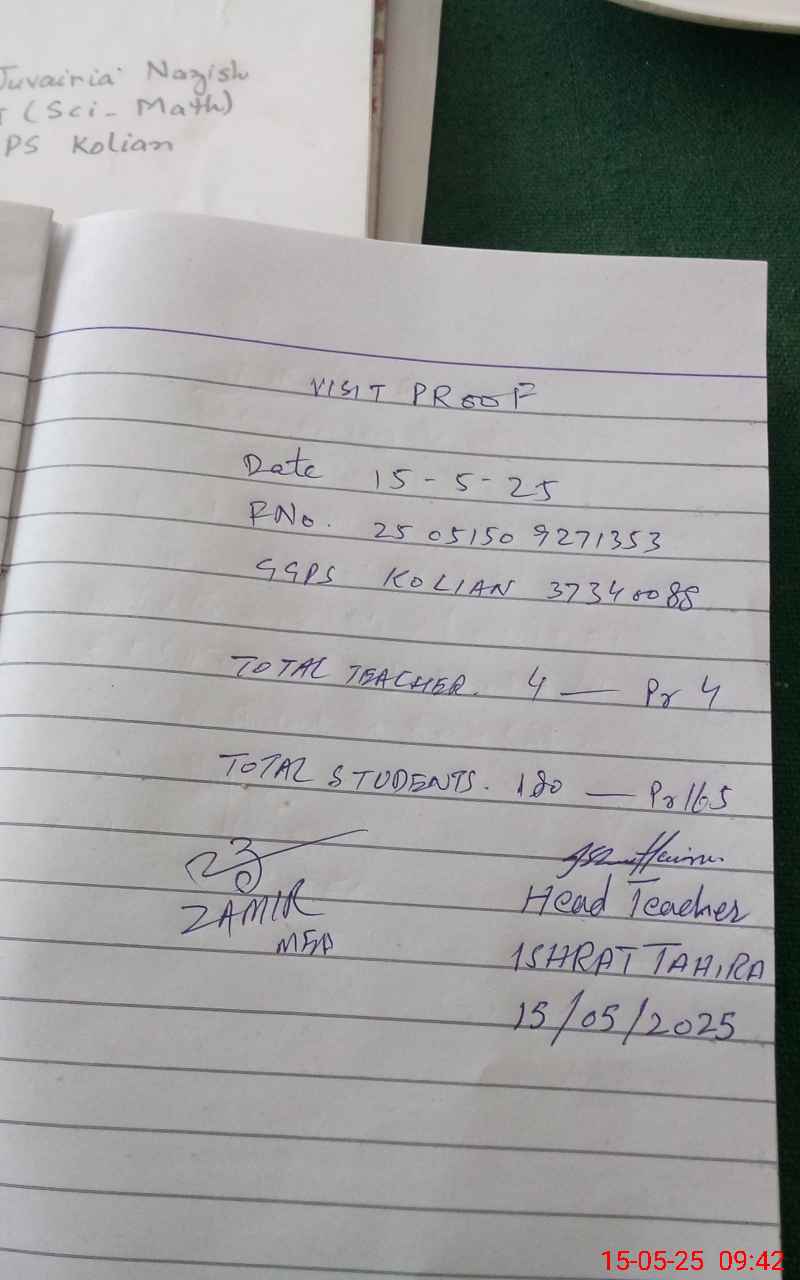 Juvairia Nazish
(Sci- Math)
PS Kolian
VISIT PROOF
Date 15-5-25
RNo. 25 05150 9271353
GGPS KOLIAN 37340088
TOTAL TEACHER. 4 — Pr 4
TOTAL STUDENTS. 180 — Pr 165
ZAMIR
MEA
Head Teacher
ISHRAT TAHIRA
15/05/2025
15-05-25 09:42